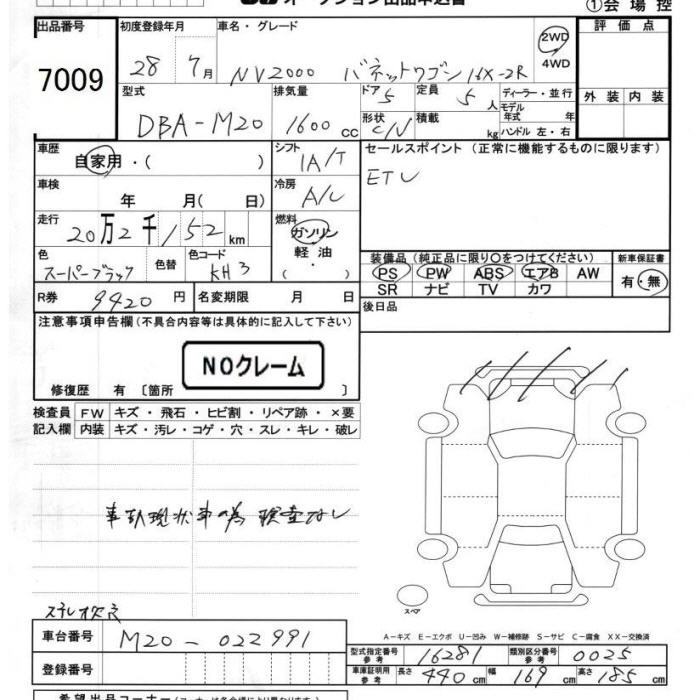 オークション出品申込書
①会場控
出品番号 7009
初度登録年月 28 7月
車名・グレード NV2000 バネットワゴン 16X-2R
2WD
4WD
評価点
外装 内装
型式 DBA-M20
排気量 1600cc
ドア 5
形状 C/V
定員 5人
積載 kg
ディーラー・並行
モデル年式 年
ハンドル 左・右
車歴 自家用・( )
シフト IA/T
セールスポイント (正常に機能するものに限ります)
ETC
車検 年 月(日)
冷房 A/C
走行 20万2千152km
燃料 ガソリン
軽油
( ・ )
色 スーパーブラック
色替
色コード KH3
装備品 (純正品に限り○をつけてください)
新車保証書
PS PW ABS エアB AW
有・無
SR ナビ TV カワ
R券 9420円
名変期限 月 日
後日品
注意事項申告欄 (不具合内容等は具体的に記入して下さい)
NOクレーム
修復歴 有 〔箇所 〕
検査員 FW キズ・飛石・ヒビ割・リペア跡・×要
記入欄 内装 キズ・汚レ・コゲ・穴・スレ・キレ・破レ
車両現状車の為 検査なし
スペア
ステレオ欠品
車台番号 M20-022991
登録番号
A-キズ E-エクボ U-凹み W-補修跡 S-サビ C-腐食 XX-交換済
型式指定番号 参考 16281
類別区分番号 参考 0025
車庫証明用 参考 長さ 440cm 幅 169cm 高さ 185cm
希望出品コーナー